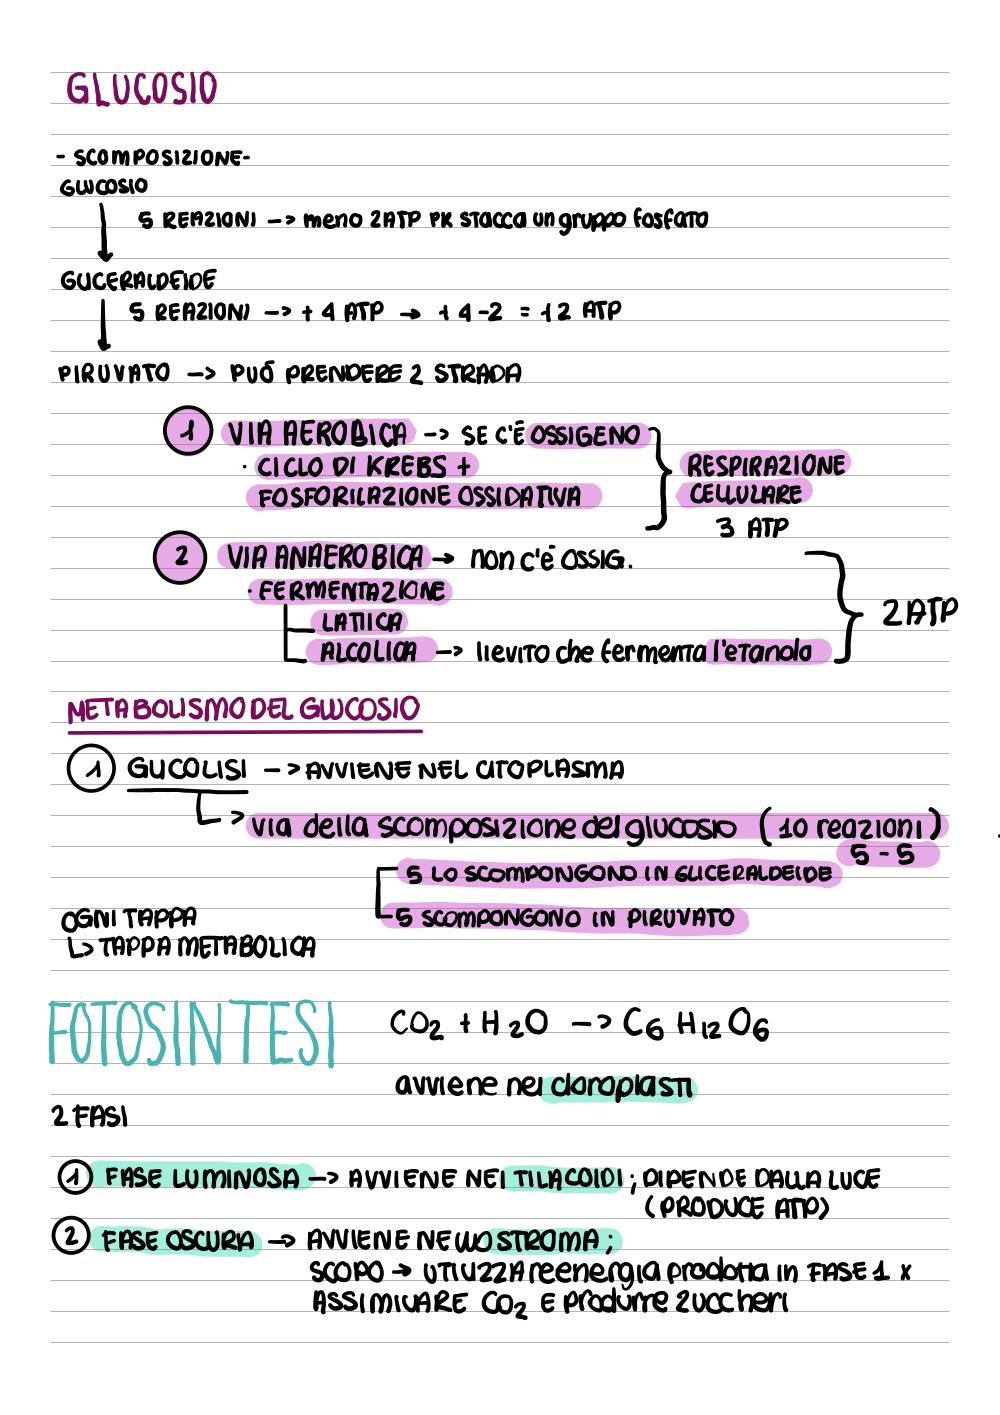 GLUCOSIO
- SCOMPOSIZIONE-
GLUCOSIO
5 REAZIONI -> meno 2ATP PK stacca un gruppo fosfato
GLICERALDEIDE
5 REAZIONI -> + 4 ATP → +4-2 = +2 ATP
PIRUVATO -> PUÓ PRENDERE 2 STRADA
1 VIA AEROBICA -> SE C'É OSSIGENO
· CICLO DI KREBS +
FOSFORILAZIONE OSSIDATIVA
RESPIRAZIONE
CELLULARE
3 ATP
2 VIA ANAEROBICA → non c'è OSSIG.
· FERMENTAZIONE
LATTICA
ALCOLICA -> lievito che fermenta l'etanolo
2 ATP
METABOLISMO DEL GLUCOSIO
1 GLICOLISI -> AVVIENE NEL CITOPLASMA
-> via della scomposizione del glucosio (10 reazioni)
5 - 5
5 LO SCOMPONGONO IN GLICERALDEIDE
5 SCOMPONGONO IN PIRUVATO
OGNI TAPPA
↳ TAPPA METABOLICA
FOTOSINTESI
CO₂ + H₂O -> C₆ H₁₂ O₆
avviene nei cloroplasti
2 FASI
1 FASE LUMINOSA -> AVVIENE NEI TILACOIDI ; DIPENDE DALLA LUCE
(PRODUCE ATP)
2 FASE OSCURA → AVVIENE NELLO STROMA ;
SCOPO → UTILIZZARE energia prodotta in FASE 1 x
ASSIMILARE CO₂ E produrre zuccheri